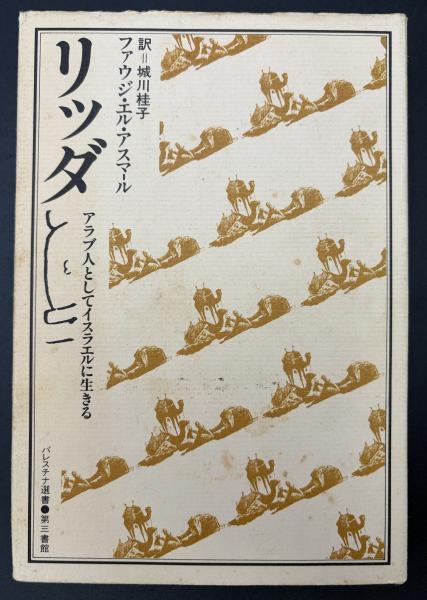 訳=城川桂子
ファウジ・エル・アスマール
リッダ
アラブ人としてイスラエルに生きる
パレスチナ選書●第三書館